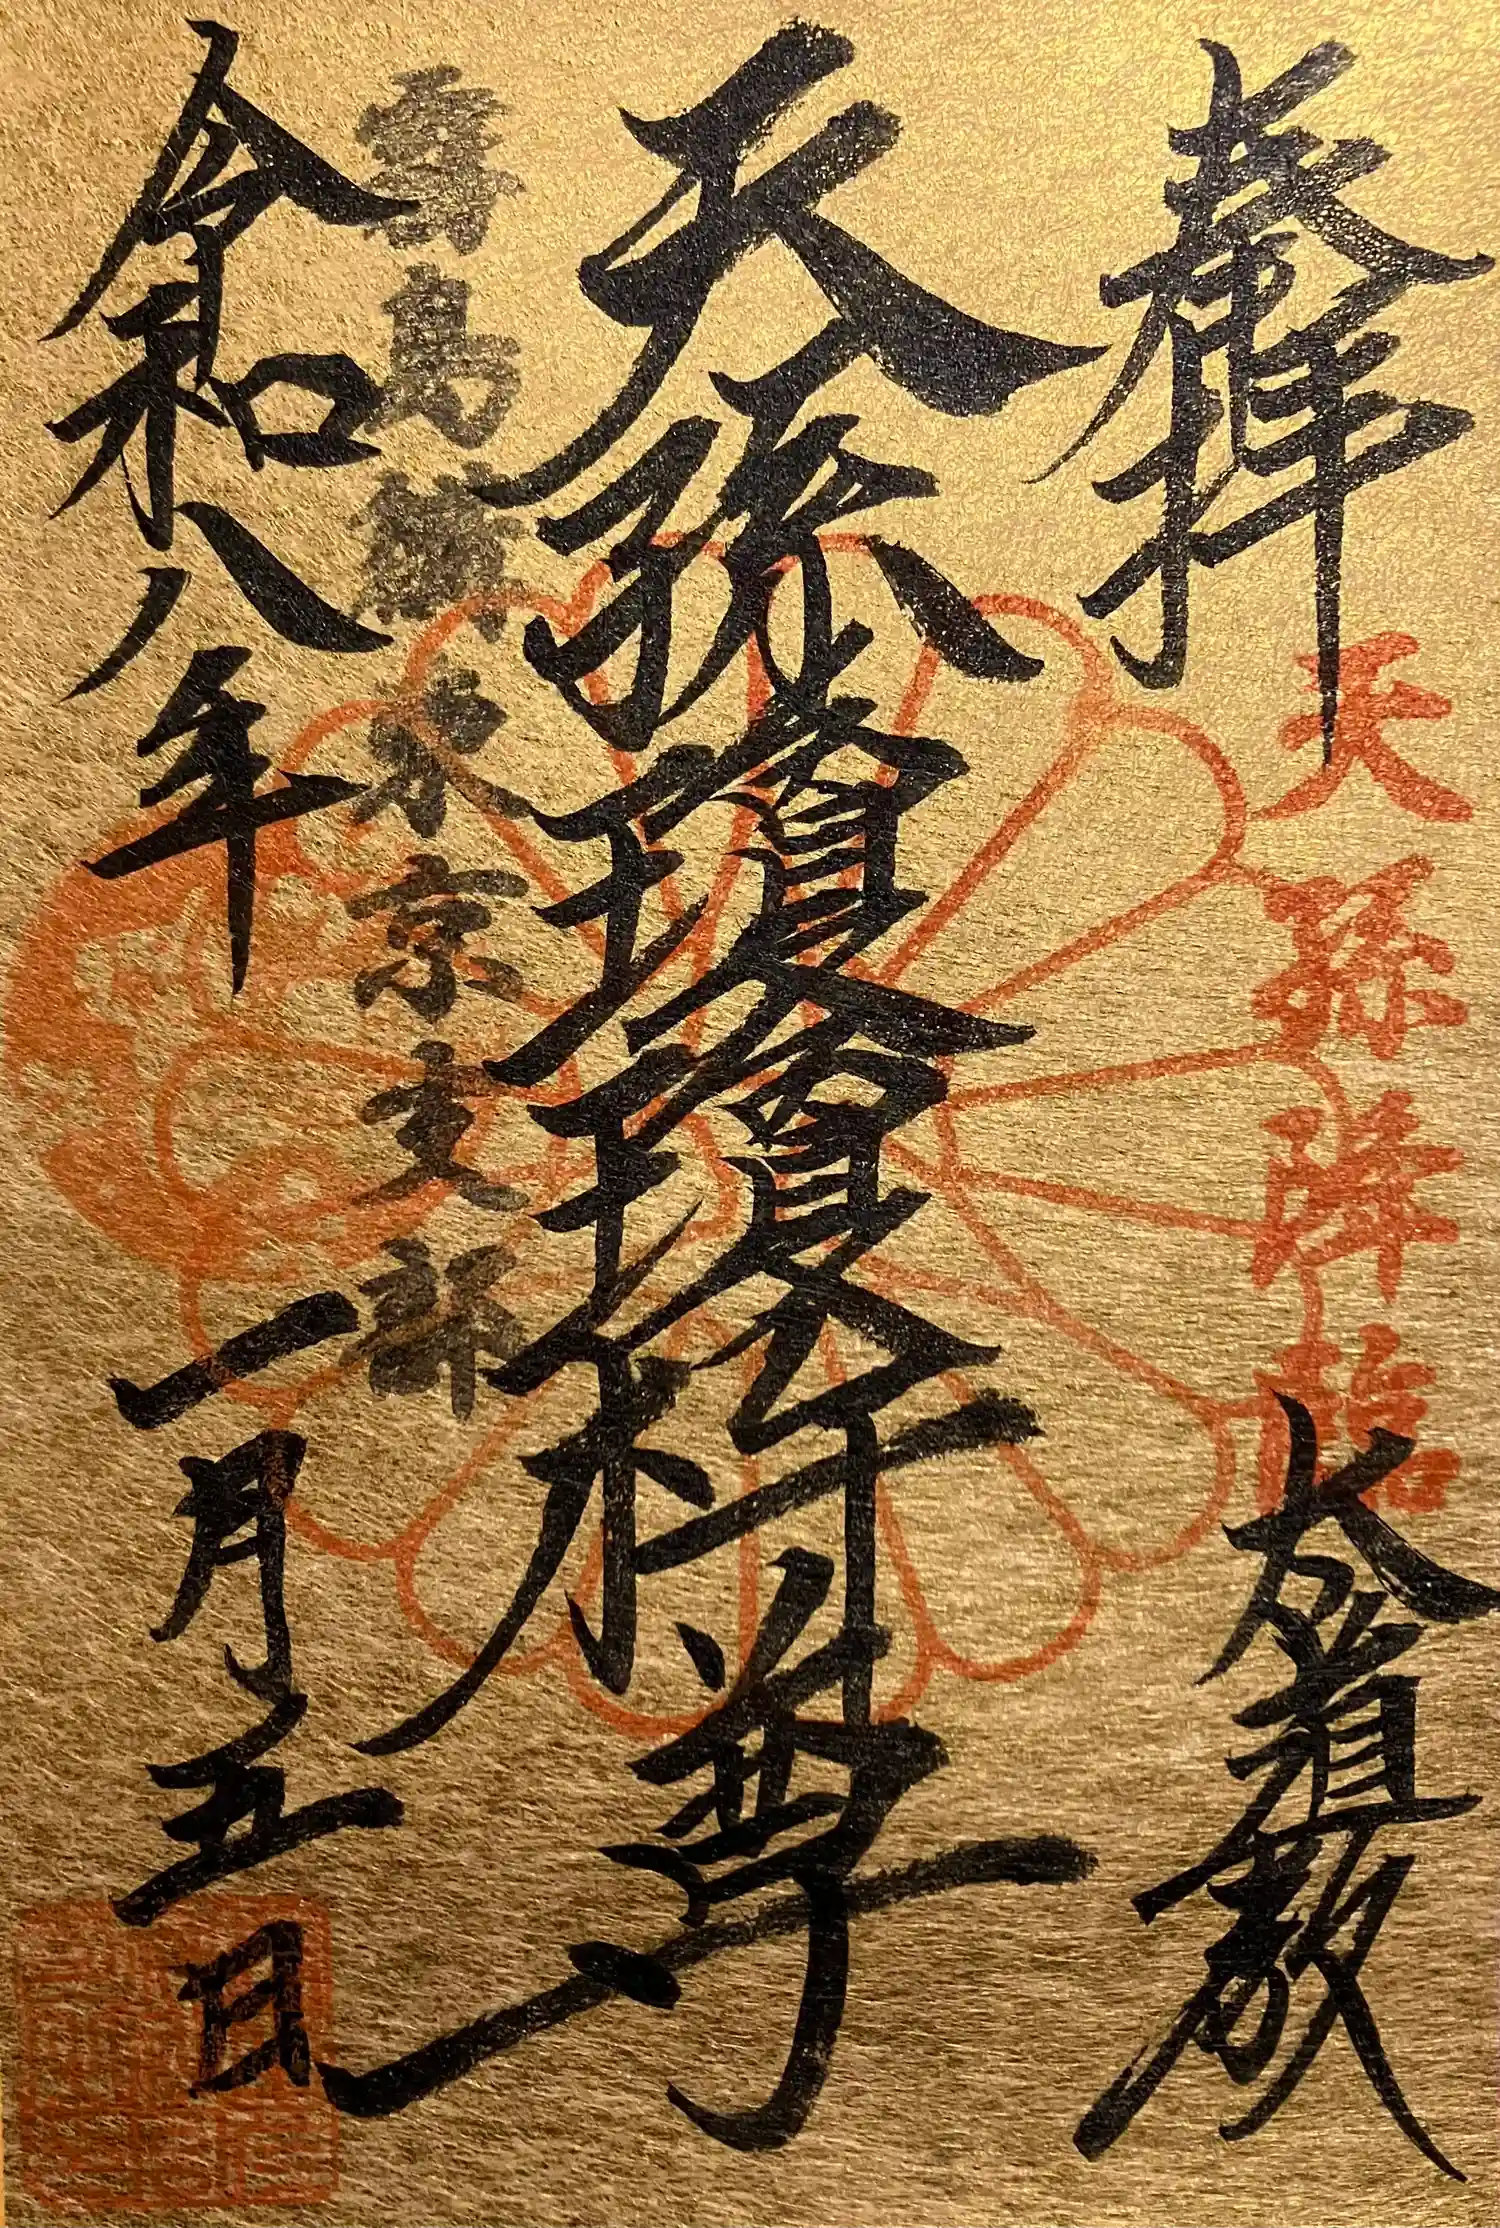 奉拝
天孫降臨
太道教
天孫瓊瓊杵尊
島
東京支部
令和八年
一月五日